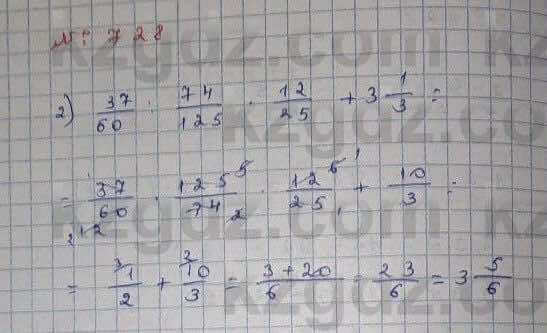 №: 728
2) 37/60 : 74/125 · 12/25 + 3 1/3 =
= 37/60 · 125/74 · 12/25 + 10/3 =
= 1/2 + 10/3 = 3+20/6 = 23/6 = 3 5/6